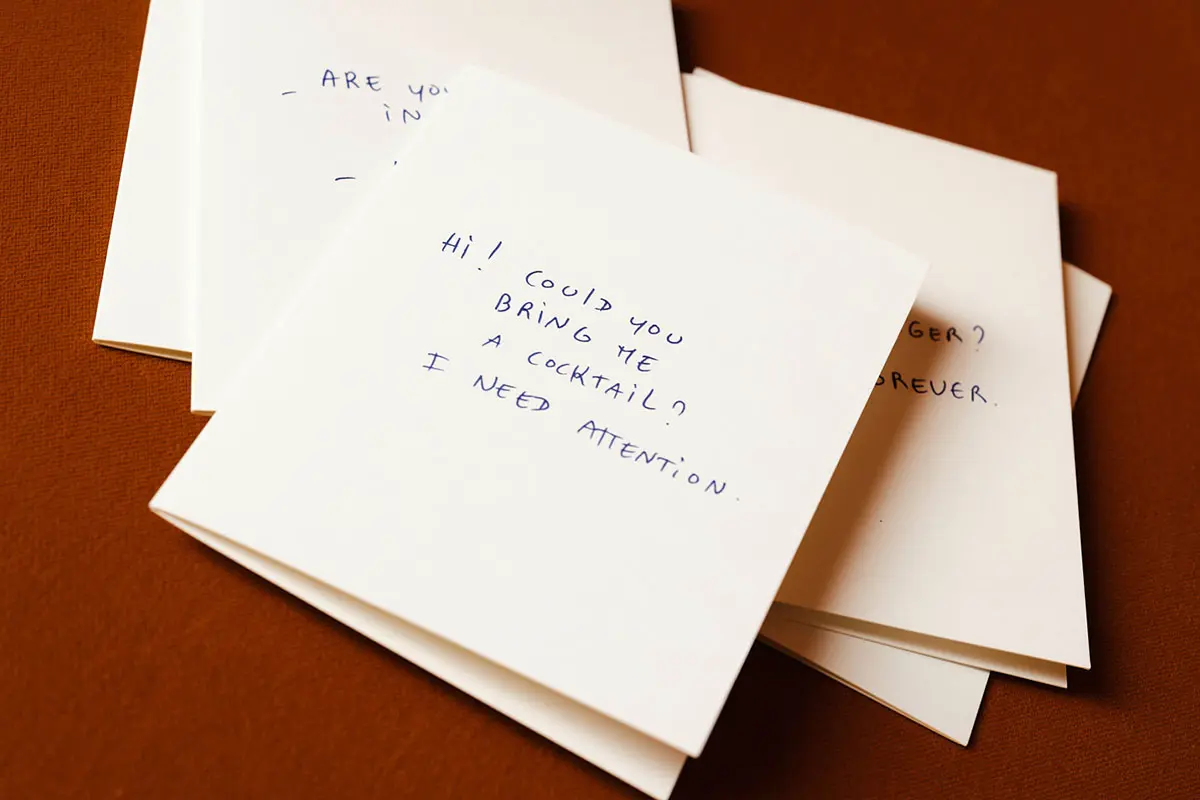 - ARE YOU
iN
-
Hi! COULD YOU
BRiNG ME
A COCKTAiL?
I NEED ATTENTiON.
GER?
OREVER.